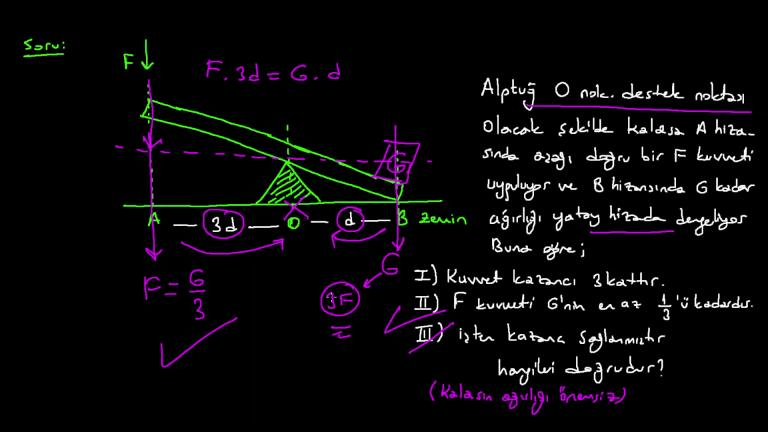 Soru:
F
F. 3d = G. d
G
A
3d
O
d
B
Zemin
F = G/3
G
3F
Alptuğ O nok. destek noktası
Olacak şekilde kalasa A hiza-
sında aşağı doğru bir F kuvveti
uyguluyor ve B hizasında G kadar
ağırlığı yatay hizada dengeliyor
Buna göre;
I) Kuvvet kazancı 3 kattır.
II) F kuvveti G'nin en az 1/3 'ü kadardır.
III) işten kazanç sağlanmıştır
hangileri doğrudur?
(Kalasın ağırlığı önemsiz)